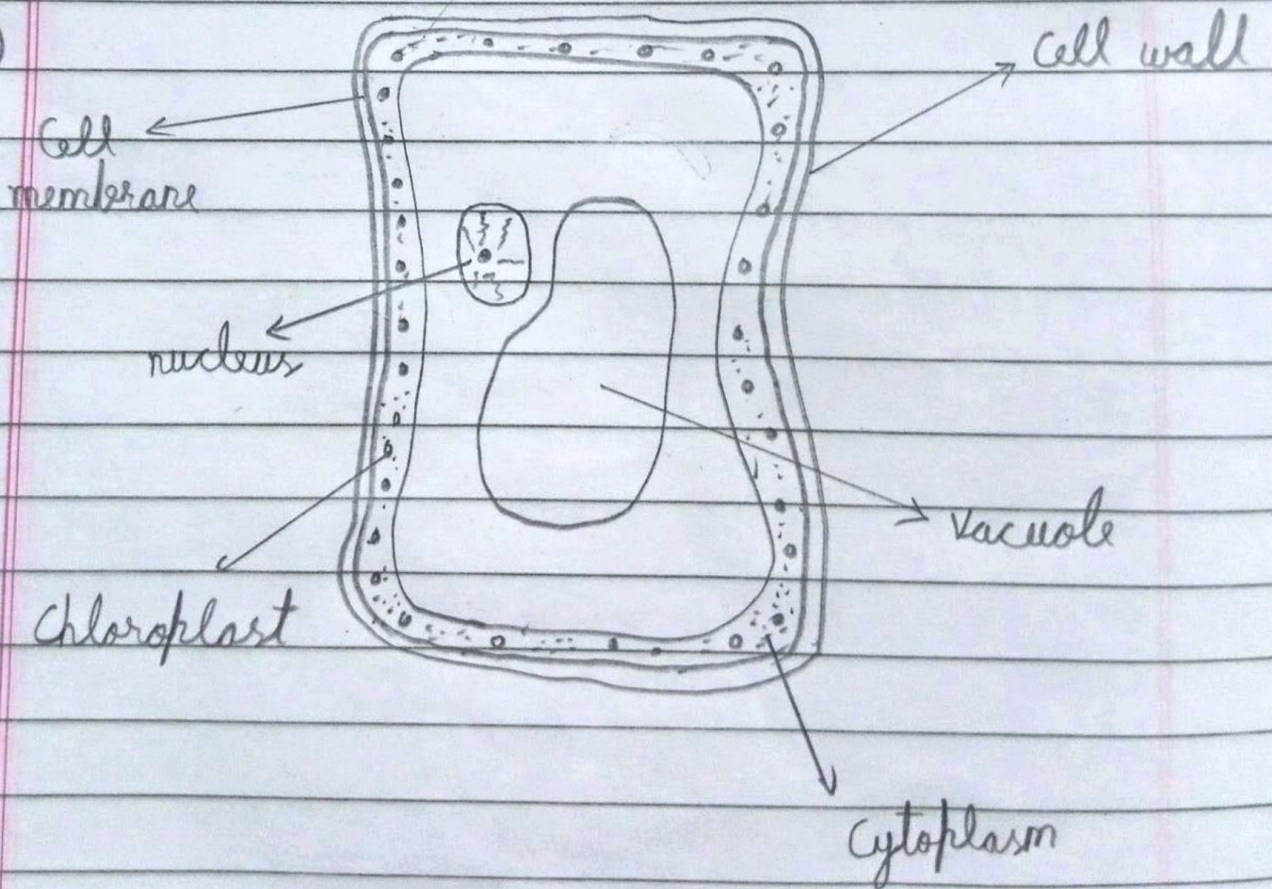 Cell wall
Cell
membrane
nucleus
Vacuole
Chloroplast
Cytoplasm